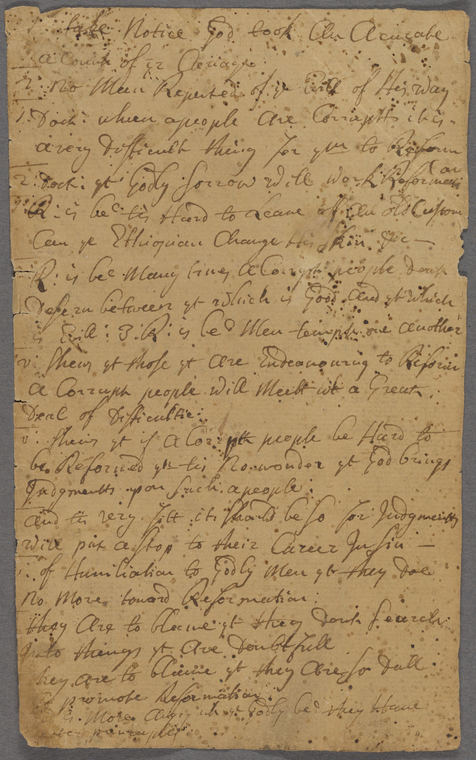 take Notice God took An Accurate
a Count of yr Cariage
2 no Man Repented of ye Evill of His way
1. Doct: when a people Are Corrupt it is
a very Difficult thing for ym to Reform
2: Doct: yt Godly Sorrow will work Reformati on
R: is bec tis Hard to Leave off An old Custom
Can ye Ethiopian Change His skin &c —
R: is bec Many times a Corrupt people dont
Desern between yt which is Good And yt which
is Evill: 3: R: is bec Men tempt one another
Shews yt those yt Are Endeavouring to Reform
a Corrupt people will Meet wt a Great
Deal of Difficultie:
Shews yt if a Corrupt people be Hard to
be Reformed yn tis No wonder yt God brings
Judgments upon Such a people
And tis very fitt it Should be so for Judgments
will put a stop to their Career In Sin —
of Humiliation to Godly Men yt they doe
no More toward Reformation
they Are to blame yt they dont Search
Into things yt Are Doubtfull
they are to blame yt they Are so dull
to promote Reformation
More yt Godly bec they Have